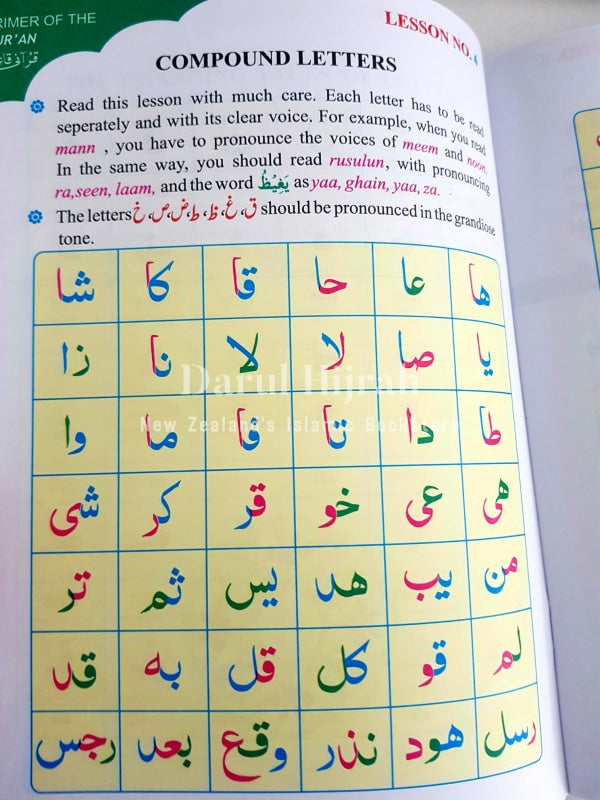 RIMER OF THE
UR'AN
LESSON NO. 4
COMPOUND LETTERS
Read this lesson with much care. Each letter has to be read
seperately and with its clear voice. For example, when you read
mann , you have to pronounce the voices of meem and noon.
In the same way, you should read rusulun, with pronouncing
ra,seen, laam, and the word يَغِيْظُ as yaa, ghain, yaa, za.
The letters ق، غ، ظ، ط،ض،ص، خ should be pronounced in the grandiose
tone.
ها عا حا قا كا شا
يا صا لا لا نا زا
Darul Hijrah
New Zealand's Islamic Bookstore
طا دا تا فا ما وا
هى عى خو قر كر شى
من يب هد يس ثم تر
لم قو كل قل به قد
رسل هود نذر وقع بعد رجس